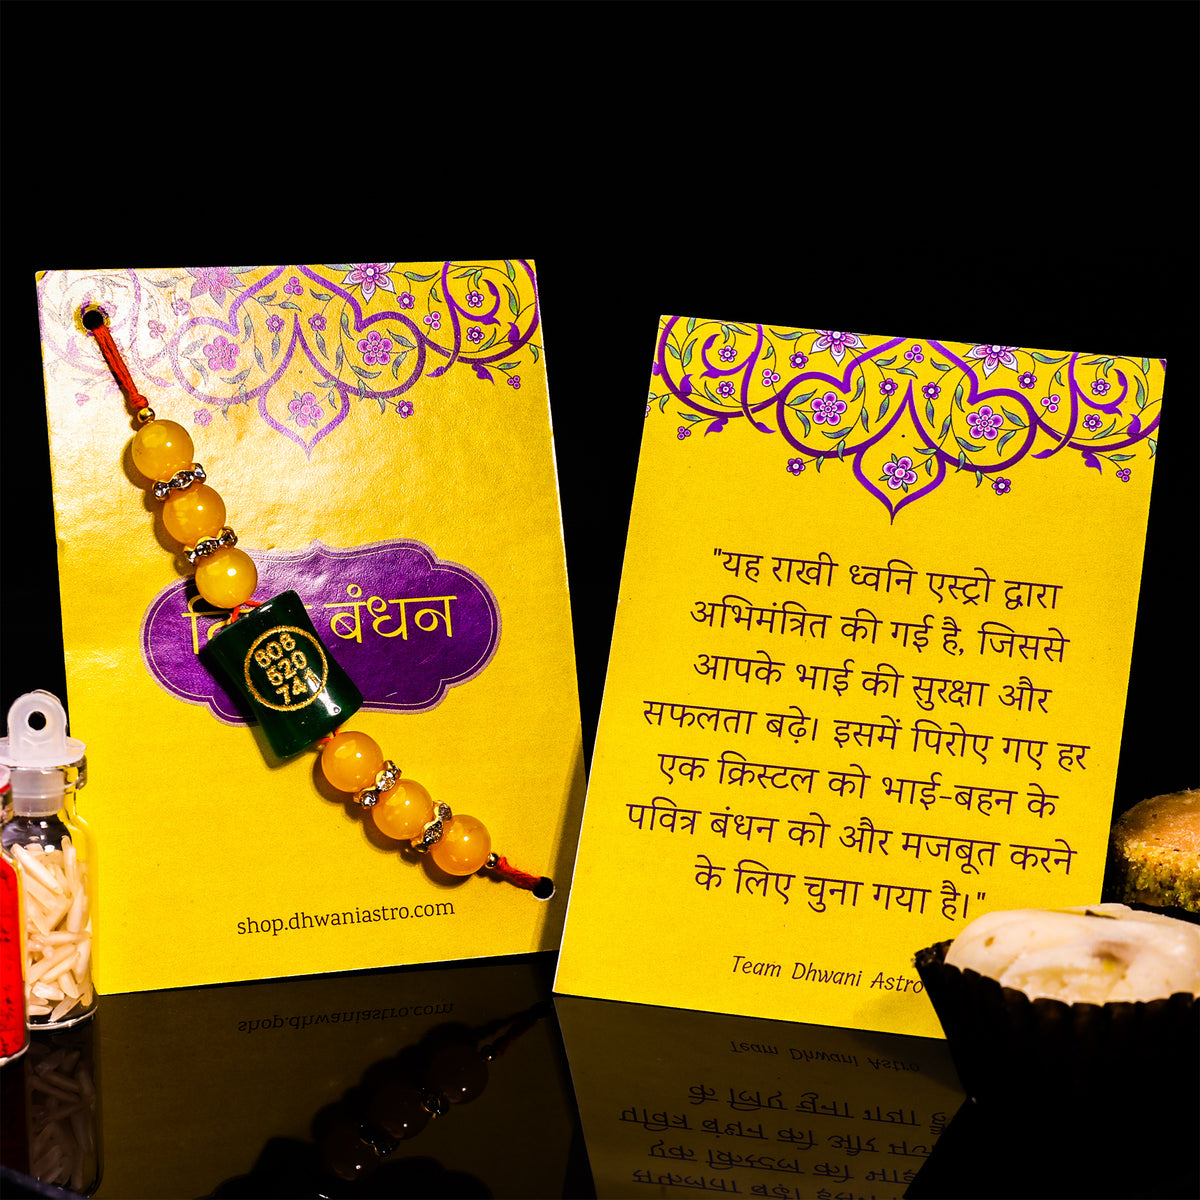 बंधन
808
520
741
shop.dhwaniastro.com
"यह राखी ध्वनि एस्ट्रो द्वारा
अभिमंत्रित की गई है, जिससे
आपके भाई की सुरक्षा और
सफलता बढ़े। इसमें पिरोए गए हर
एक क्रिस्टल को भाई-बहन के
पवित्र बंधन को और मजबूत करने
के लिए चुना गया है।"
Team Dhwani Astro